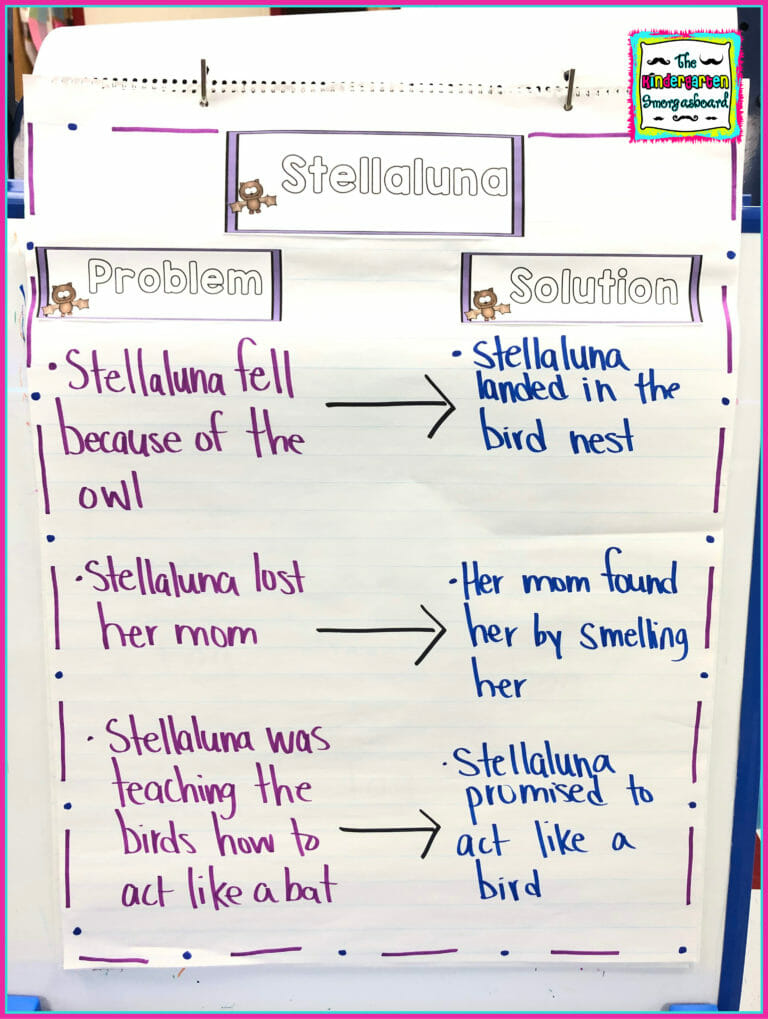 The
Kindergarten
Smorgasboard
Stellaluna
Problem
Solution
• Stellaluna fell
because of the
owl
• Stellaluna
landed in the
bird nest
• Stellaluna lost
her mom
• Her mom found
her by smelling
her
• Stellaluna was
teaching the
birds how to
act like a bat
• Stellaluna
promised to
act like a
bird